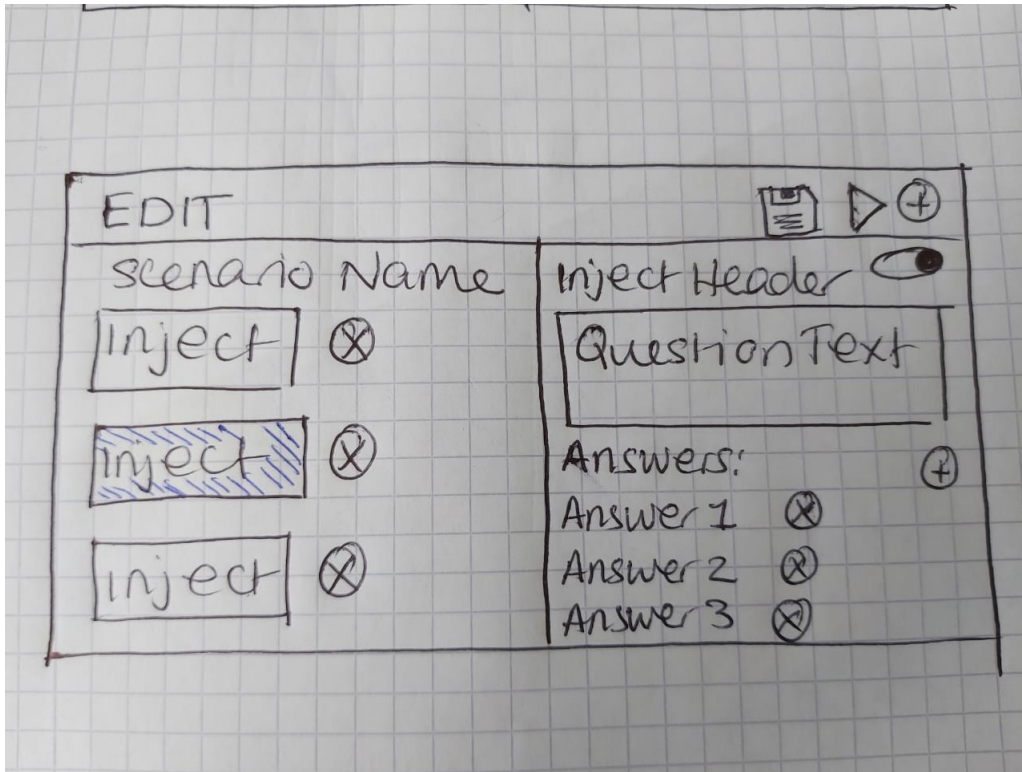 EDIT
Scenario Name
Inject
Inject
Inject
Inject Header
Question Text
Answers:
Answer 1
Answer 2
Answer 3